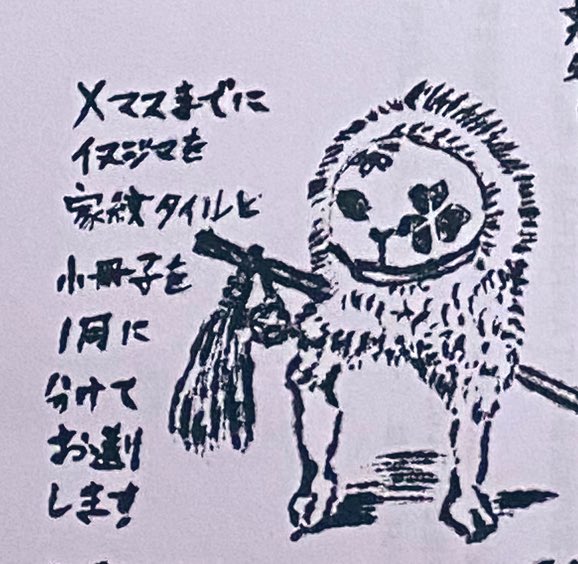 Xマスまでに
イヌジマを
家紋タイルと
小冊子を
1月に
分けて
お送り
します!